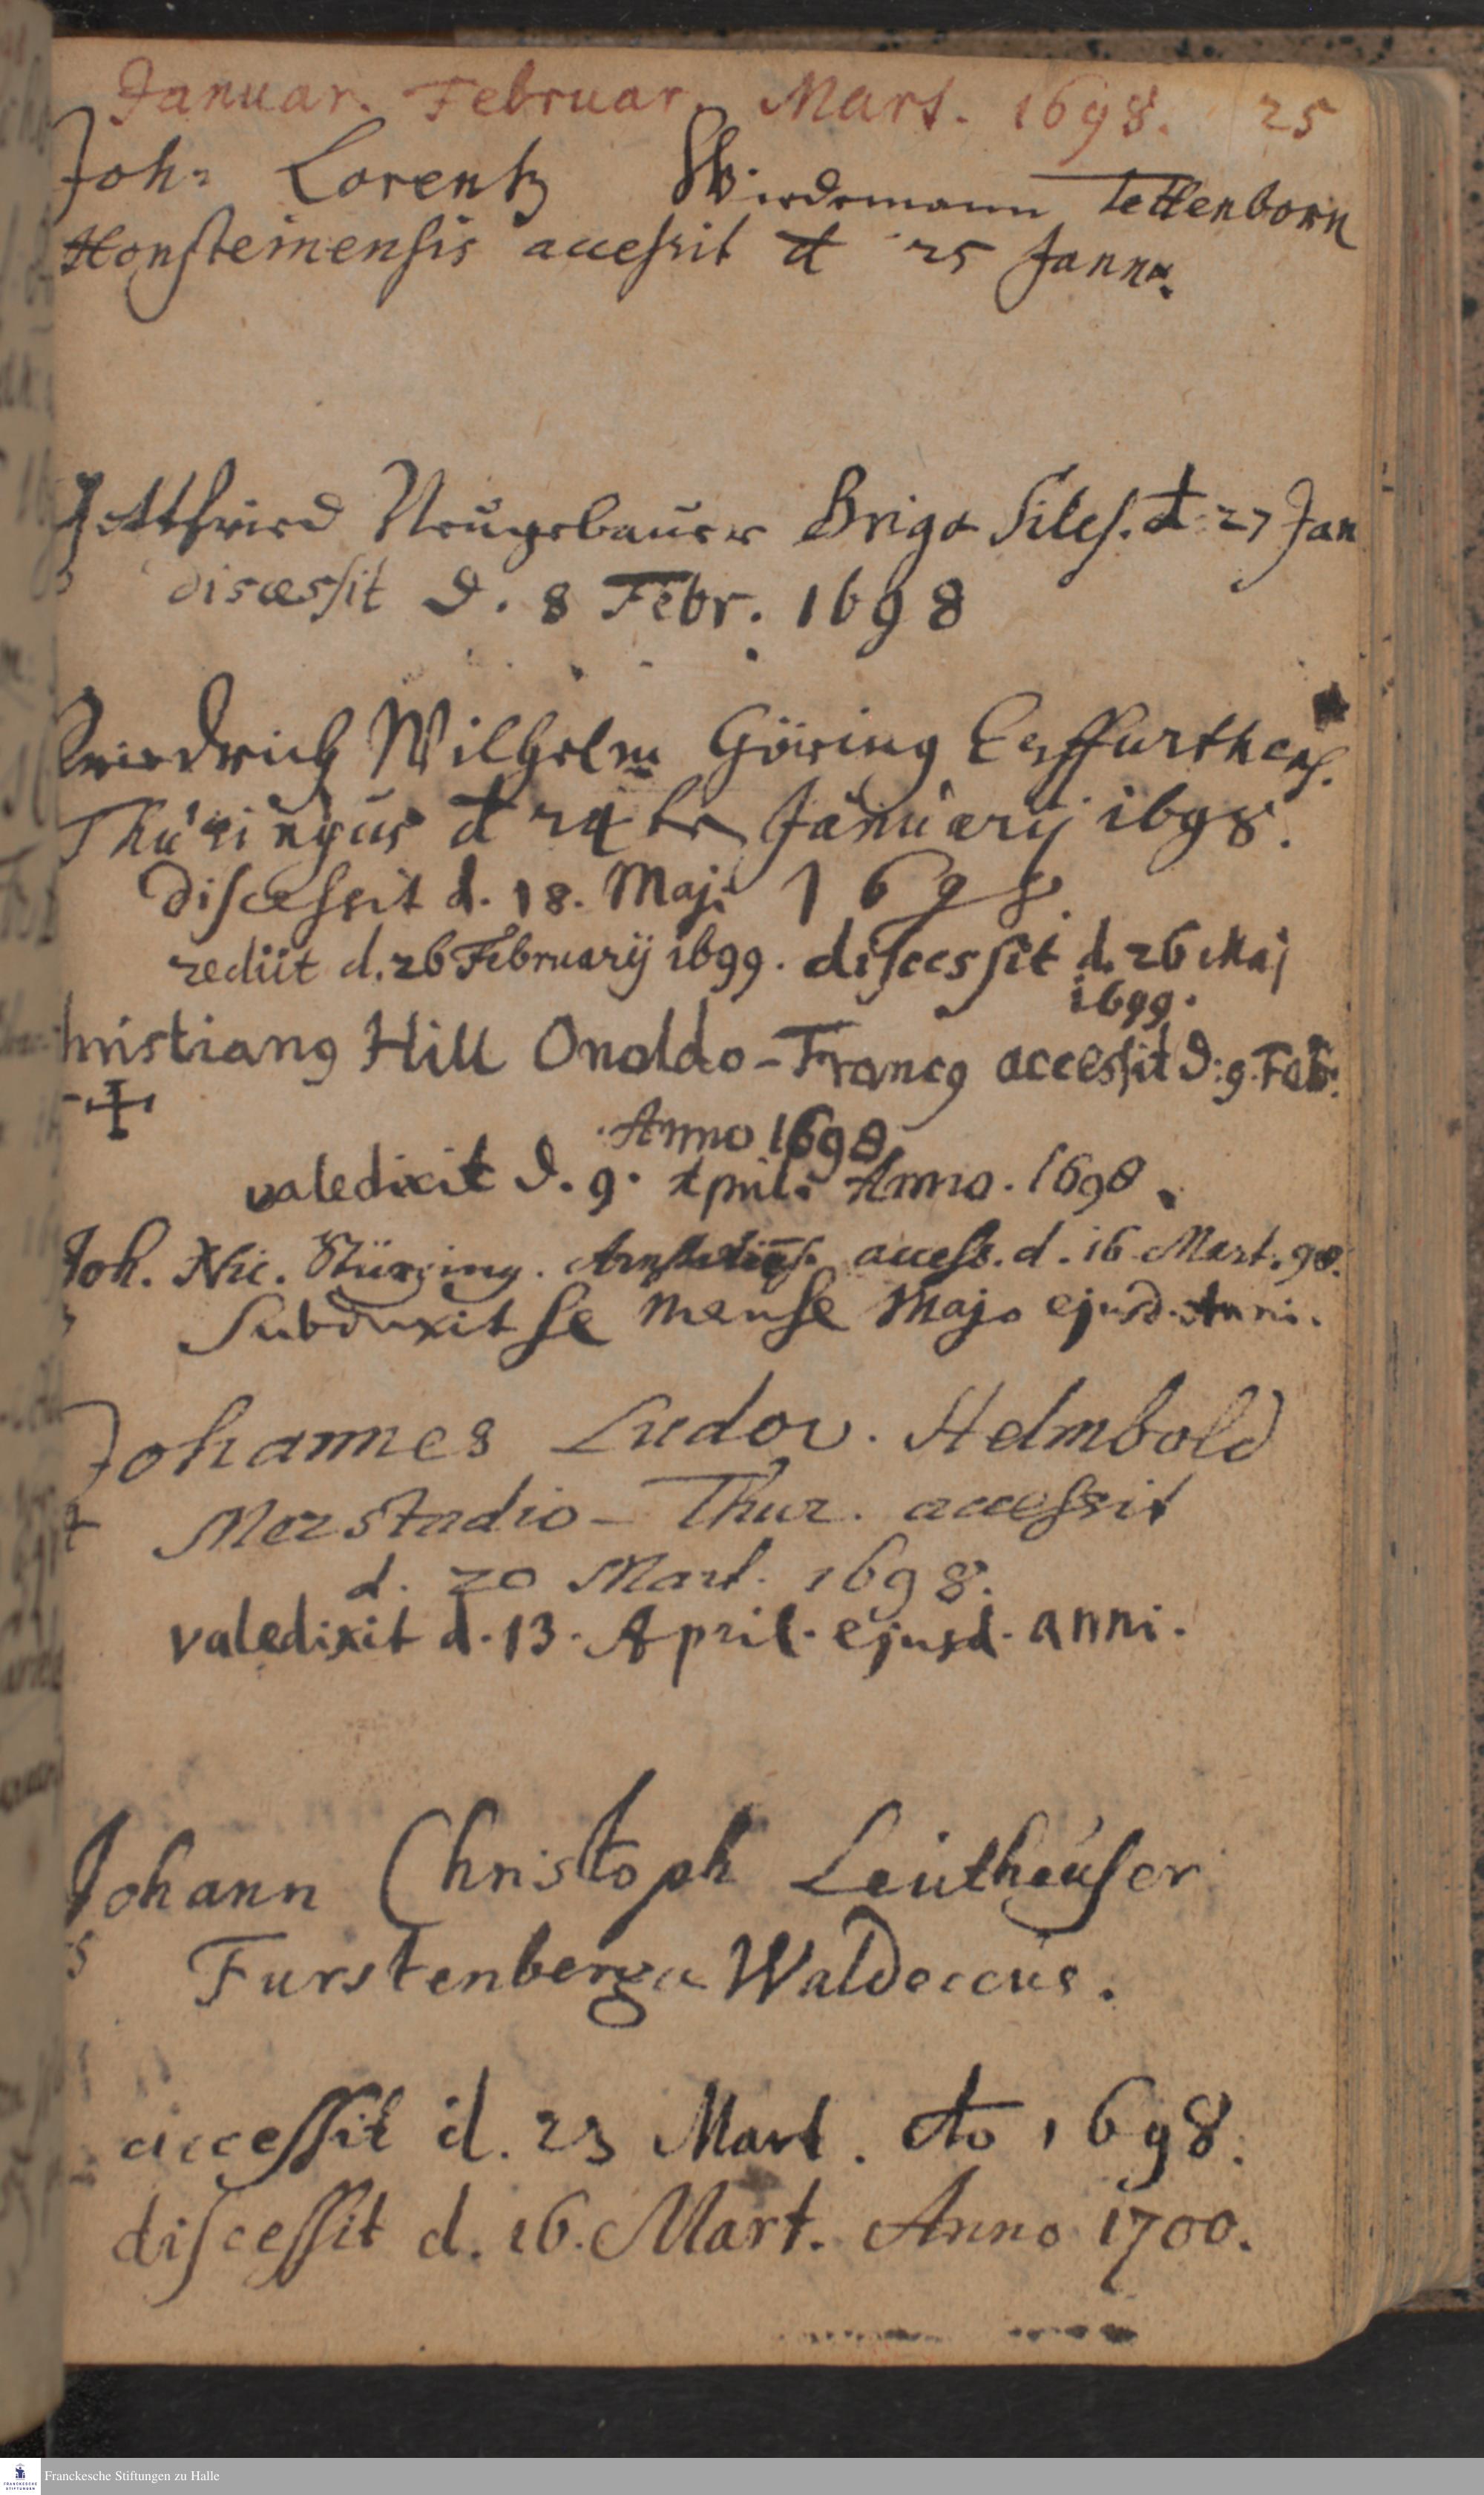 Januar. Februar. Mart. 1698. 25
Joh: Lorentz Wiedemann Tettenborn
Honsteinensis accessit d 25 Janua.
Gottfried Neugebauer Briga Siles. d 27 Jan
discessit d. 8 Febr. 1698
Friedrich Wilhelm Göring Erffurthens.
Thüringus d 24 ten Januarij 1698.
discessit d. 18. Maji 1698.
rediit d. 26 Februarij 1699. discessit d. 26 Maj
1699.
hristiang Hill Onoldo-Francg accessit d: 9. Feb.
Anno 1698.
valedixit d. 9. April. Anno. 1698.
Joh. Nic. Stürzing. access. d. 16 Mart. 98.
Subduxit se mense Majo ejusd. Anni.
Johannes Ludov. Helmbold
Merstadio-Thur. accessit
d. 20 Mart. 1698.
valedixit d. 13. April. ejusd. anni.
Johann Christoph Leutheuser
Furstenberga Waldeccus.
accessit d. 23 Mart. Ao 1698.
discessit d. 16. Mart. Anno 1700.
FRANCKESCHE STIFTUNGEN
Franckesche Stiftungen zu Halle